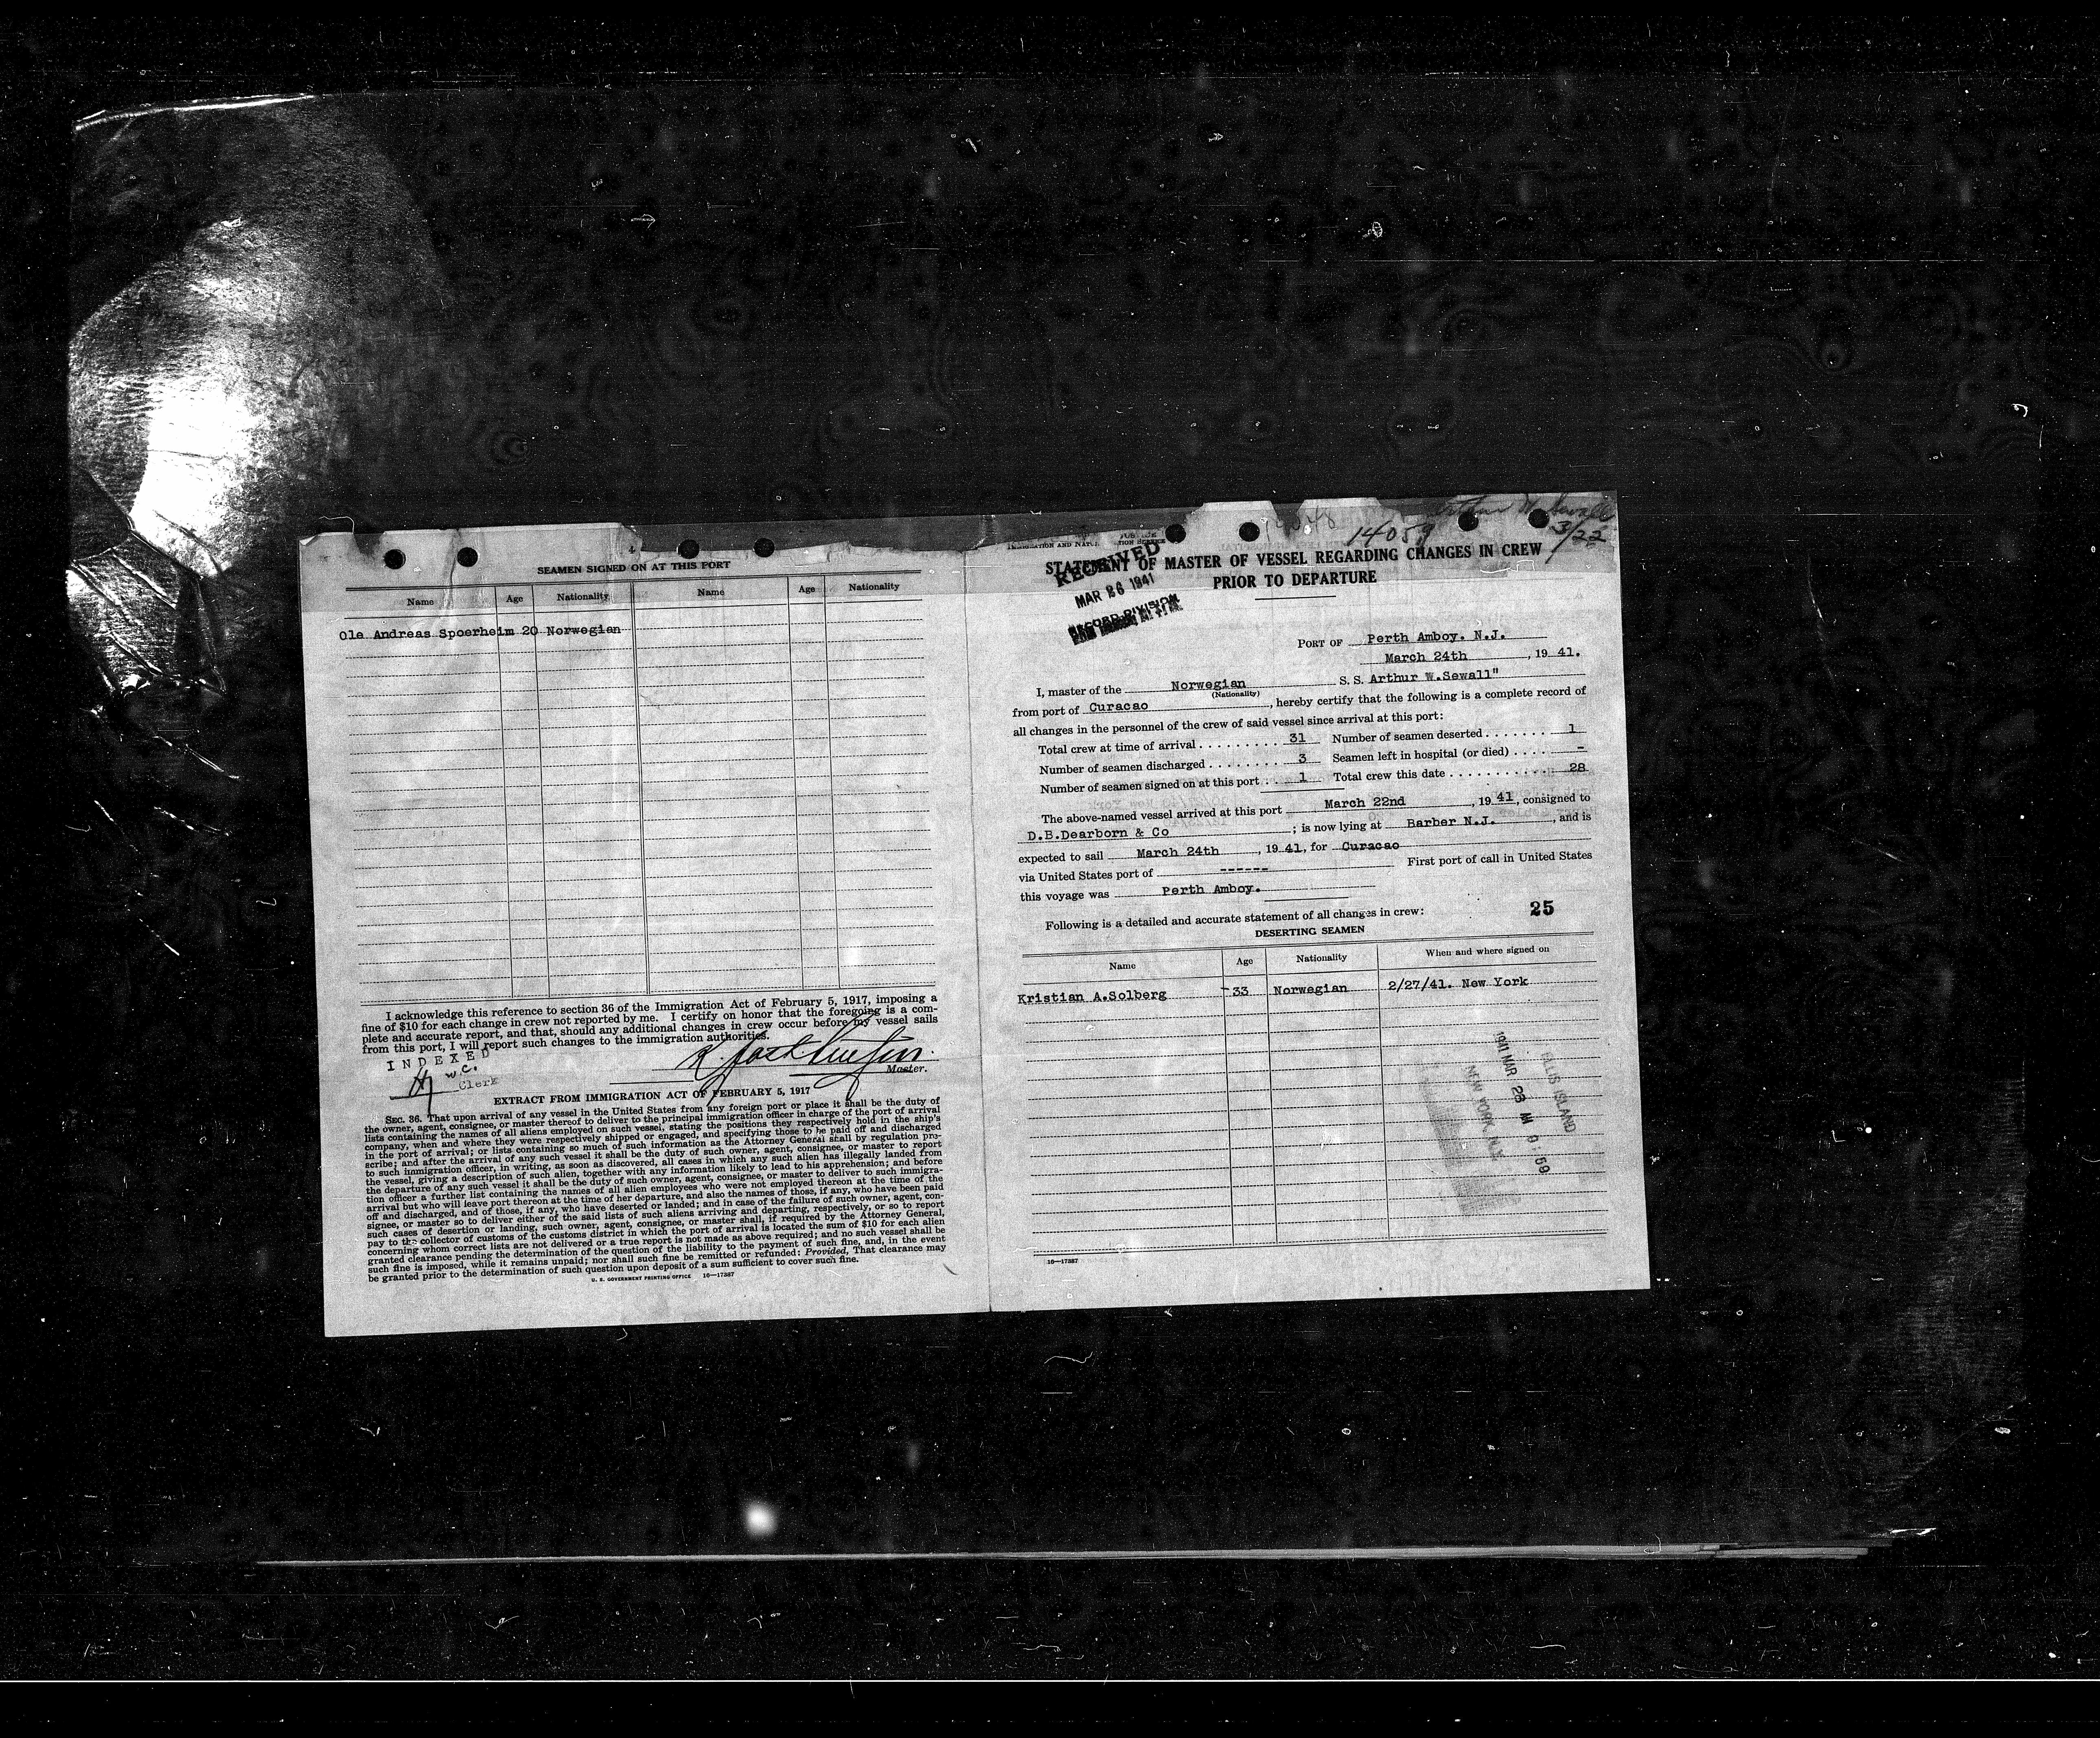 SEAMEN SIGNED ON AT THIS PORT
Name Age Nationality Name Age Nationality
Ole Andreas Spoerheim 20 Norwegian
I acknowledge this reference to section 36 of the Immigration Act of February 5, 1917, imposing a
fine of $10 for each change in crew not reported by me. I certify on honor that the foregoing is a com-
plete and accurate report, and that, should any additional changes in crew occur before my vessel sails
from this port, I will report such changes to the immigration authorities.
INDEXED
Clerk
Master.
EXTRACT FROM IMMIGRATION ACT OF FEBRUARY 5, 1917
SEC. 36. That upon arrival of any vessel in the United States from any foreign port or place it shall be the duty of
the owner, agent, consignee, or master thereof to deliver to the principal immigration officer in charge of the port of arrival
lists containing the names of all aliens employed on such vessel, stating the positions they respectively hold in the ship's
company, when and where they were respectively shipped or engaged, and specifying those to be paid off and discharged
in the port of arrival; or lists containing so much of such information as the Attorney General shall by regulation pre-
scribe; and after the arrival of any such vessel it shall be the duty of such owner, agent, consignee, or master to report
to such immigration officer, in writing, as soon as discovered, all cases in which any such alien has illegally landed from
the vessel, giving a description of such alien, together with any information likely to lead to his apprehension; and before
the departure of any such vessel it shall be the duty of such owner, agent, consignee, or master to deliver to such immigra-
tion officer a further list containing the names of all alien employees who were not employed thereon at the time of the
arrival but who will leave port thereon at the time of her departure, and also the names of those, if any, who have been paid
off and discharged, and of those, if any, who have deserted or landed; and in case of the failure of such owner, agent, con-
signee, or master so to deliver either of the said lists of such aliens arriving and departing, respectively, or so to report
such cases of desertion or landing, such owner, agent, consignee, or master shall, if required by the Attorney General,
pay to the collector of customs of the customs district in which the port of arrival is located the sum of $10 for each alien
concerning whom correct lists are not delivered or a true report is not made as above required; and no such vessel shall be
granted clearance pending the determination of the question of the liability to the payment of such fine, and, in the event
such fine is imposed, while it remains unpaid; nor shall such fine be remitted or refunded: Provided, That clearance may
be granted prior to the determination of such question upon deposit of a sum sufficient to cover such fine.
U. S. GOVERNMENT PRINTING OFFICE 10—17387
Arthur W. Sewall
14059 3/22
STATEMENT OF MASTER OF VESSEL REGARDING CHANGES IN CREW
PRIOR TO DEPARTURE
RECEIVED
MAR 26 1941
RECORD DIVISION
PORT OF Perth Amboy. N.J.
March 24th, 19 41.
I, master of the Norwegian S. S. Arthur W.Sewall"
(Nationality)
from port of Curacao, hereby certify that the following is a complete record of
all changes in the personnel of the crew of said vessel since arrival at this port:
Total crew at time of arrival 31 Number of seamen deserted 1
Number of seamen discharged 3 Seamen left in hospital (or died) -
Number of seamen signed on at this port 1 Total crew this date 28
The above-named vessel arrived at this port March 22nd, 19 41, consigned to
D.B.Dearborn & Co; is now lying at Barber N.J., and is
expected to sail March 24th, 19 41, for Curacao
via United States port of ------ First port of call in United States
this voyage was Perth Amboy.
Following is a detailed and accurate statement of all changes in crew: 25
DESERTING SEAMEN
Name Age Nationality When and where signed on
Kristian A.Solberg 33 Norwegian 2/27/41. New York
ELLIS ISLAND
1941 MAR 23 AM 9:59
NEW YORK, N.Y.
10—17387